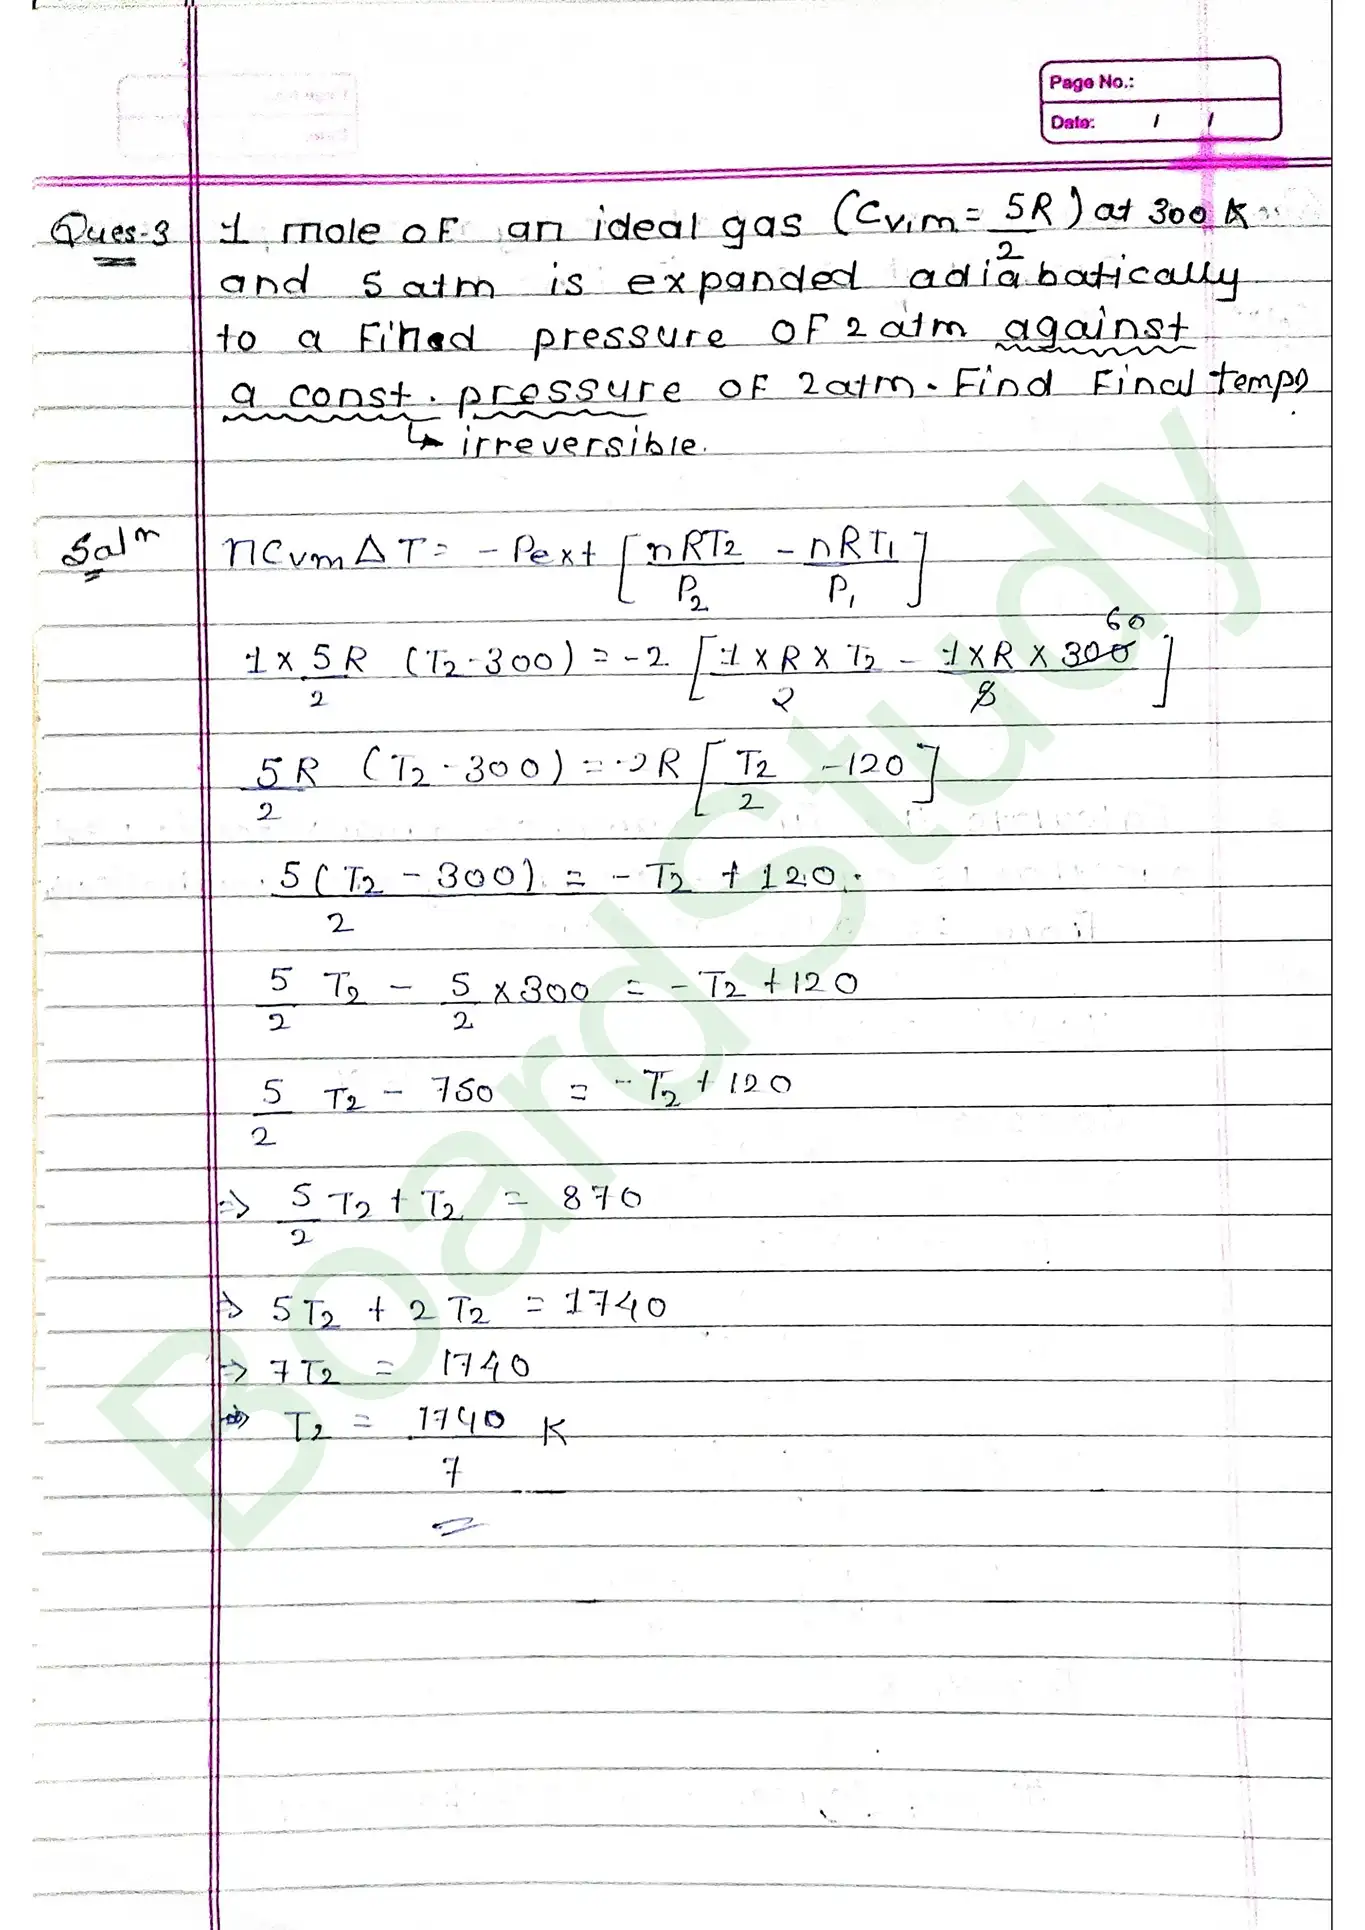 Page No.:
Date: / /
Ques-3 1 mole of an ideal gas (Cv,m = 5R/2) at 300 K
and 5 atm is expanded adiabatically
to a Finned pressure of 2 atm against
a const. pressure of 2atm. Find Final temp
↳ irreversible.
Solⁿ nCvm ΔT = - Pext [nRT₂/P₂ - nRT₁/P₁]
60
1 × 5R/2 (T₂-300) = -2 [1 × R × T₂/2 - 1 × R × 300/5]
5R/2 (T₂-300) = -2R [T₂/2 -120]
5(T₂ - 300)/2 = - T₂ + 120.
5/2 T₂ - 5/2 × 300 = - T₂ + 120
5/2 T₂ - 750 = - T₂ + 120
⇒ 5/2 T₂ + T₂ = 870
⇒ 5T₂ + 2T₂ = 1740
⇒ 7T₂ = 1740
⇒ T₂ = 1740/7 K
BoardStudy